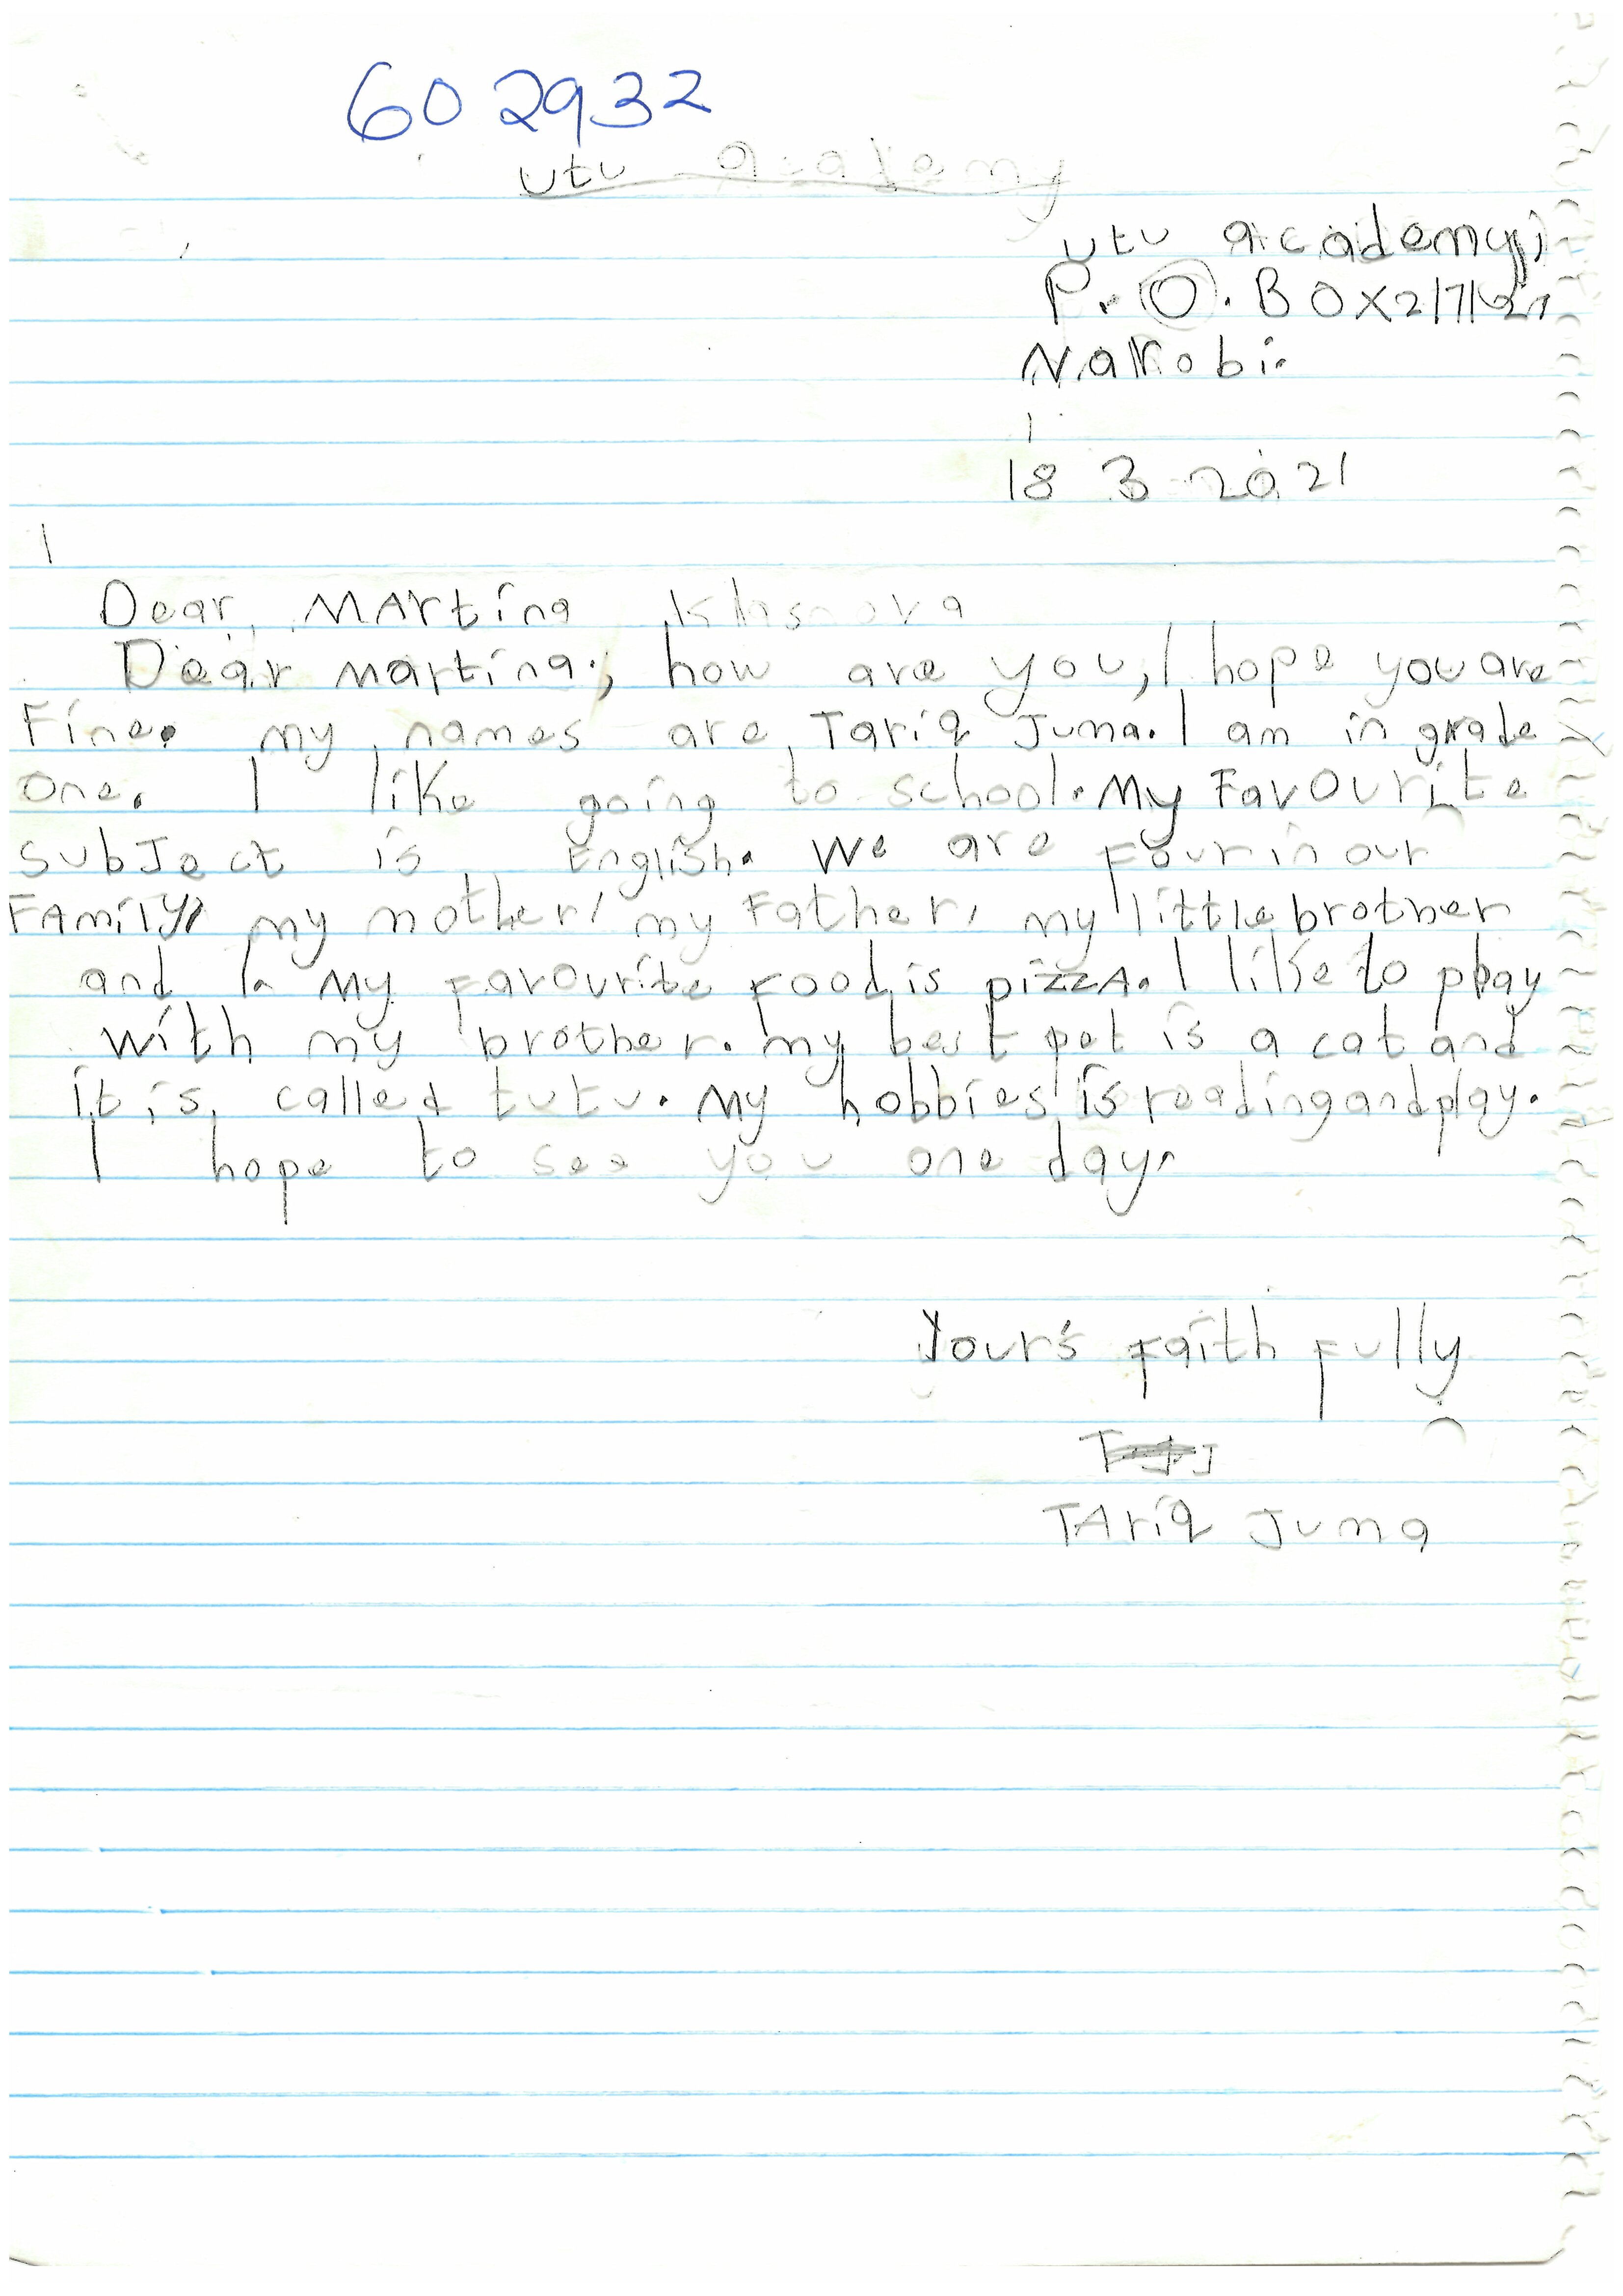 602932
utu academy
utu academy,
P.O. BOX
Nairobi.
18 3 2021
Dear, MArtina
Dear martina, how are you, I hope you are
Fine. my names are Tariq Juma. I am in grade
one. I like going to school. My Favourite
subJect is English. We are Four in our
FAmily, my mother, my Father, my little brother
and I. My Favourite Food is pizzA. I like to play
with my brother. my best pet is a cat and
it is called tutu. My hobbies is reading and play.
I hope to see you one day.
Your's Faith Fully
TAriq Juma